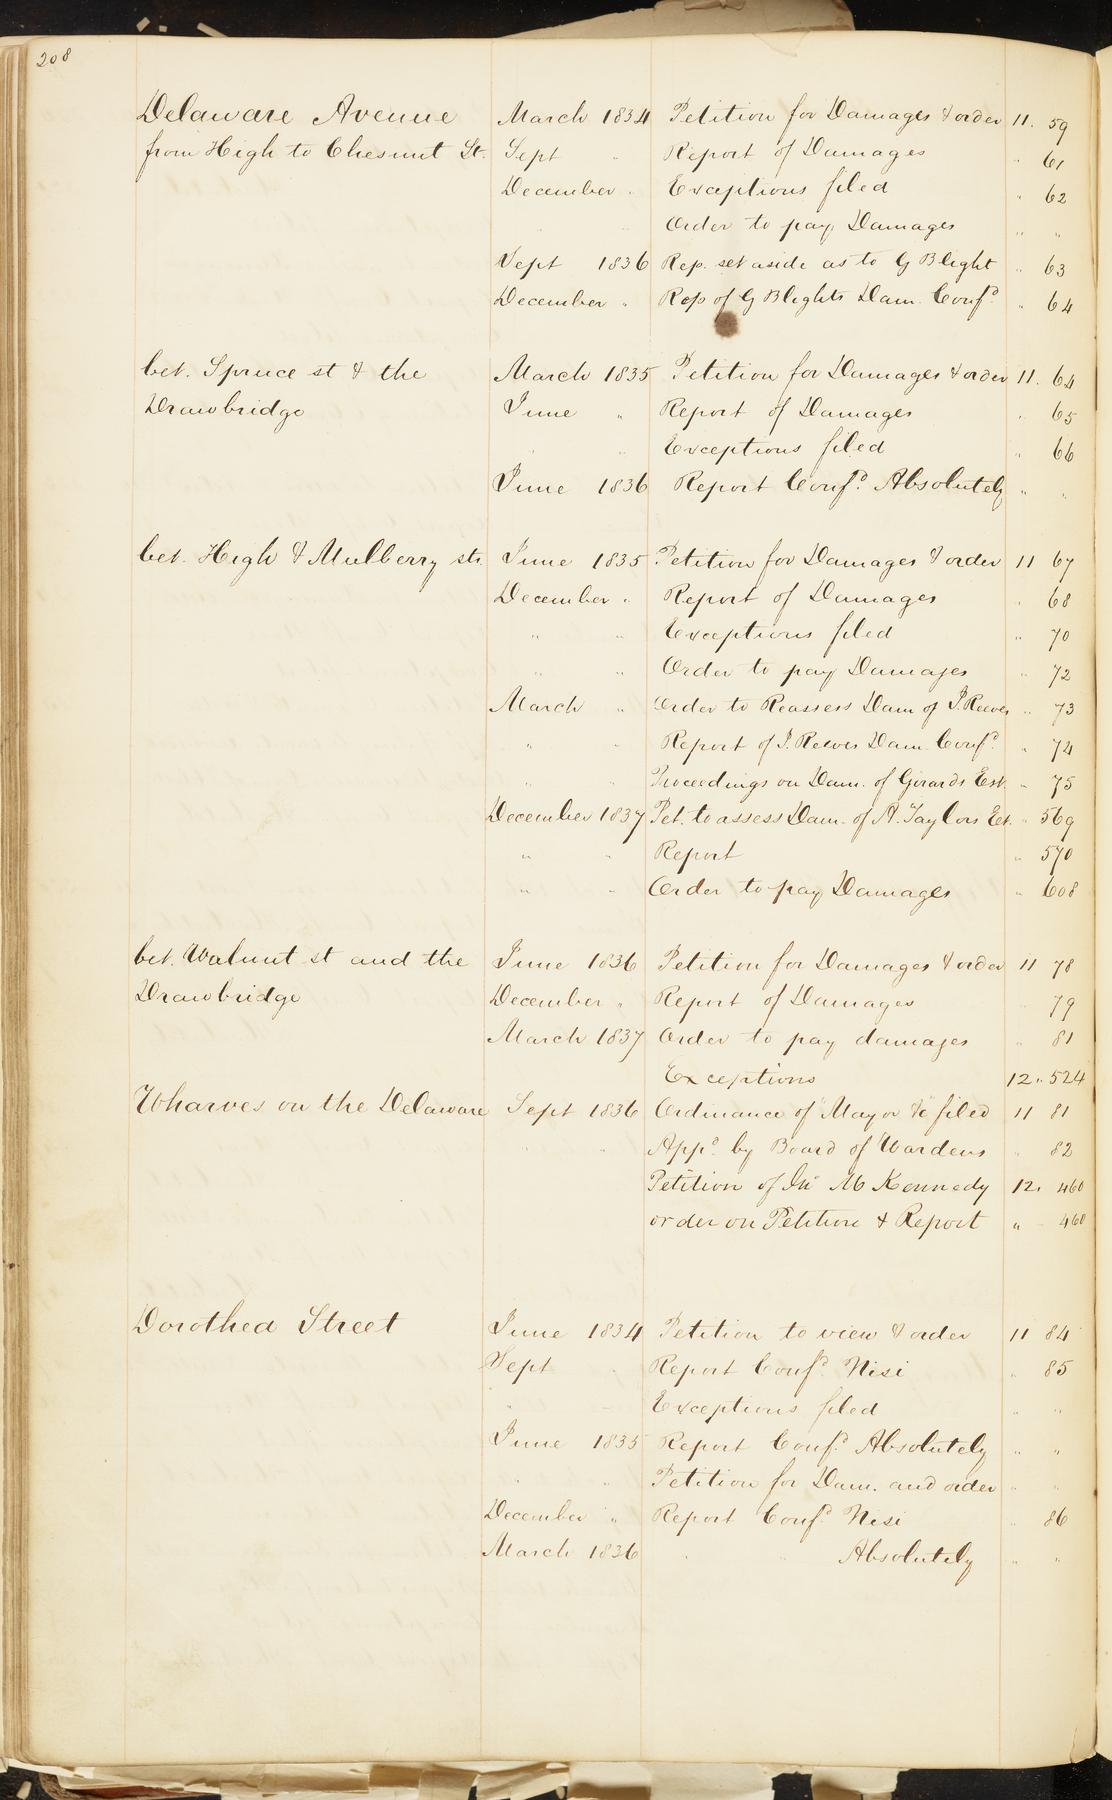 208
Delaware Avenue March 1834 Petition for Damages & order 11. 59
from High to Chesnut St. Sept " Report of Damages " 61
December " Exceptions filed " 62
" " Order to pay Damages " "
Sept 1836 Rep. set aside as to G Blight " 63
December " Rep of G Blights Dam. Confd " 64
bet. Spruce st & the March 1835 Petition for Damages & order 11. 64
Drawbridge June " Report of Damages " 65
" " Exceptions filed " 66
June 1836 Report Confd. Absolutely " "
bet. High & Mulberry sts. June 1835 Petition for Damages & order 11 67
December " Report of Damages " 68
" " Exceptions filed " 70
" " Order to pay Damages " 72
March " Order to Reassess Dam of J. Reeves " 73
" " Report of J. Reeves Dam. Confd. " 74
" " Proceedings on Dam. of Girards Est. " 75
December 1837 Pet. to assess Dam. of A. Taylors Est. " 569
" " Report " 570
" " Order to pay Damages " 608
bet. Walnut st and the June 1836 Petition for Damages & order 11 78
Drawbridge December " Report of Damages 79
March 1837 Order to pay damages " 81
Exceptions 12 " 524
Wharves on the Delaware Sept 1836 Ordinance of Mayor &c filed 11 81
" " Appd. by Board of Wardens " 82
Petition of Jno M Kennedy 12. 460
order on Petition & Report " 460
Dorothea Street June 1834 Petition to view & order 11 84
Sept " Report Confd. Nisi " 85
" Exceptions filed " "
June 1835 Report Confd. Absolutely " "
" " Petition for Dam. and order " "
December " Report Confd. Nisi " 86
March 1836 " " Absolutely " "